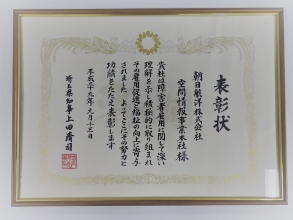 表彰状
朝日航洋株式会社
空間情報事業本社様
貴社は障害者雇用に関して深い
理解を示し積極的に取り組まれ
その雇用促進と福祉の向上に寄与
されました よってここにその努力と
功績をたたえ表彰します
平成二十九年九月十三日
埼玉県知事上田清司